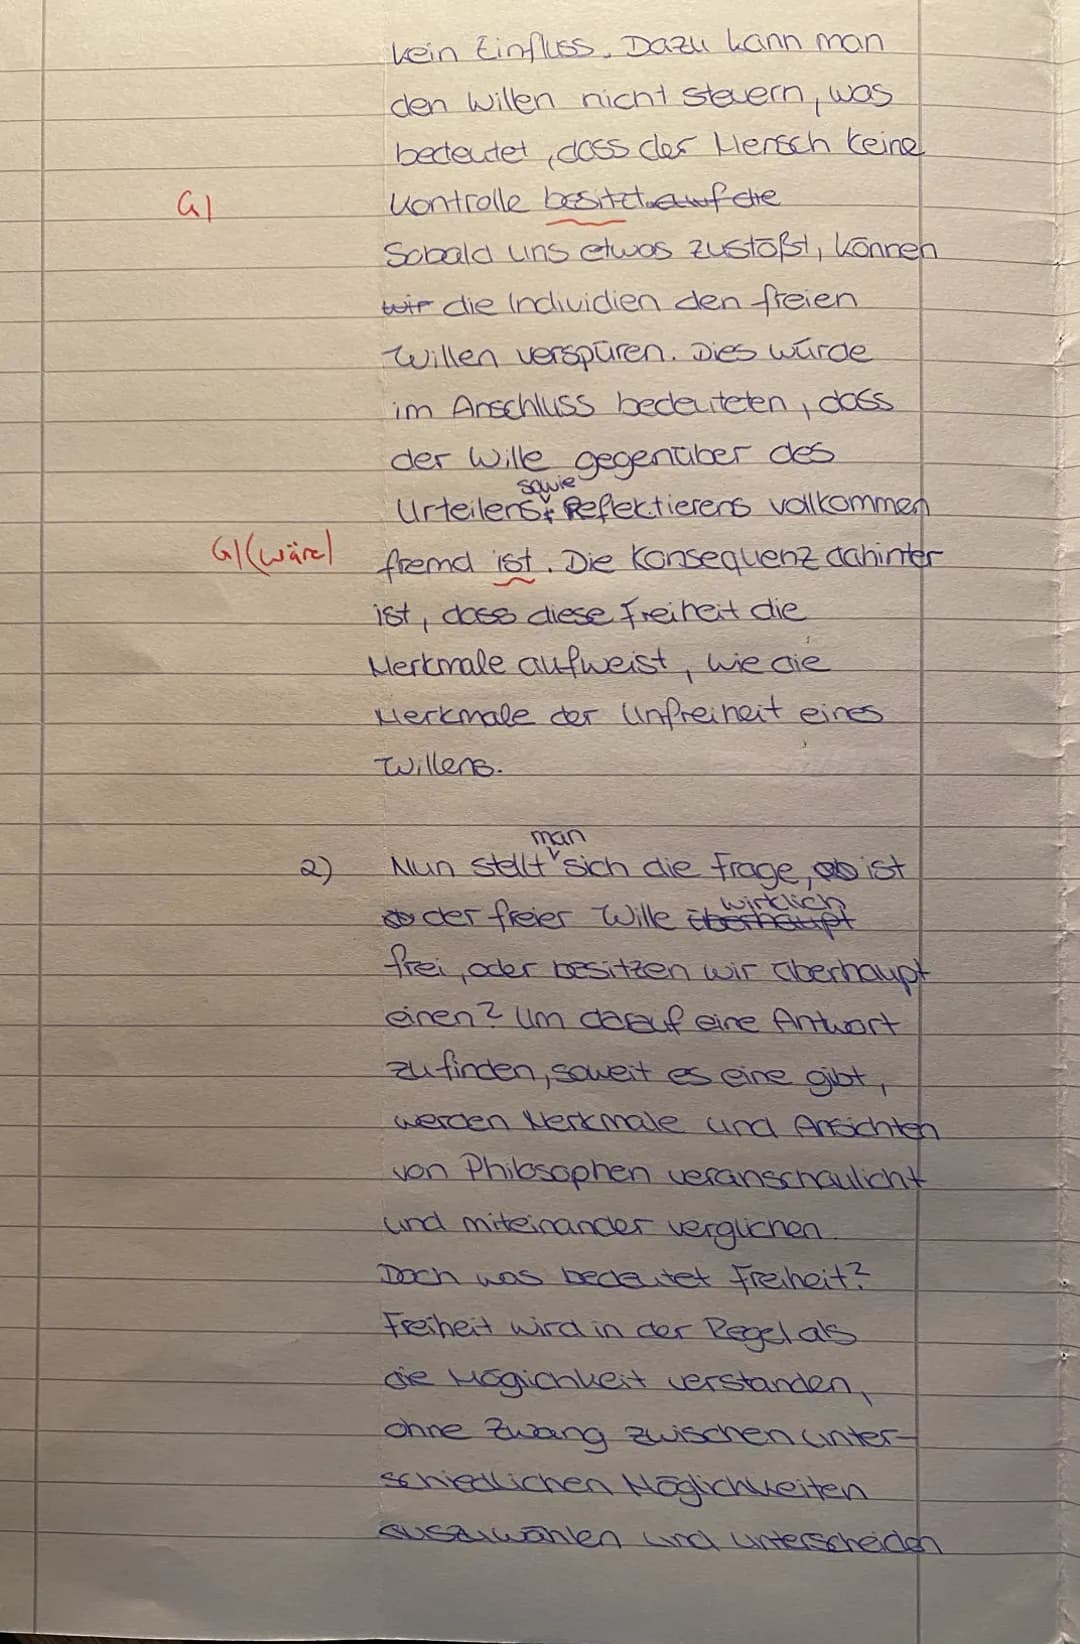 kein Einfluss. Dazu kann man
den Willen nicht steuern, was
bedeutet, dass der Mensch keine
G) Kontrolle besitzt. auf die
Sobald uns etwas zustößt, können
wir die Individien den freien
Willen verspüren. Dies würde
im Anschluss bedeuteten, dass
der Wille gegenüber des
sowie
Urteilens & Reflektierens vollkommen
G) (wäre) fremd ist. Die Konsequenz dahinter
ist, dass diese Freiheit die
Merkmale aufweist, wie die
Merkmale der Unfreiheit eines
Willens.
man
2) Nun stellt sich die Frage, ob ist
wirklich
ob der freier Wille überhaupt
frei, oder besitzen wir überhaupt
einen? Um darauf eine Antwort
zu finden, soweit es eine gibt,
werden Merkmale und Ansichten
von Philosophen veranschaulicht
und miteinander verglichen.
Doch was bedeutet Freiheit?
Freiheit wird in der Regel als
die Möglichkeit verstanden,
ohne Zwang zwischen unter-
schiedlichen Möglichkeiten
auszuwählen und unterscheiden